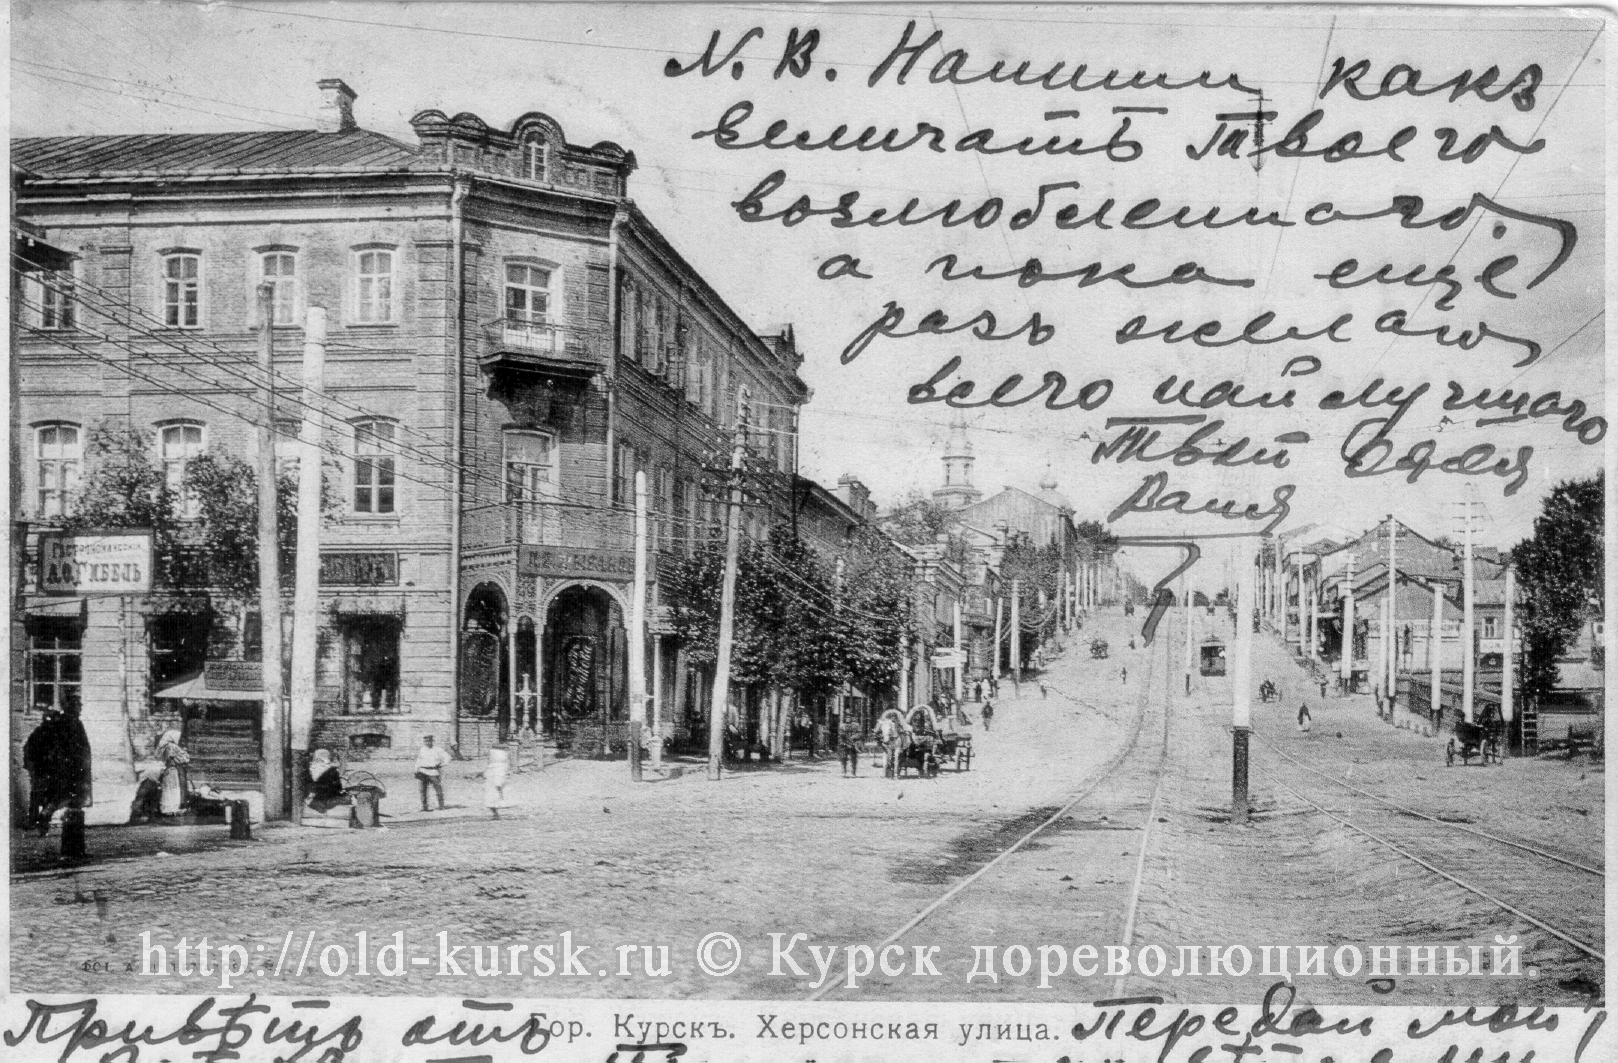 N. B. Напиши какъ
величать твоего
возлюбленнаго.
а пока еще
разъ желаю
всего найлучшаго
Твой дядя
Ваня
Гастрономическій
А.О.ГИБЕЛЬ
http://old-kursk.ru © Курск дореволюционный.
Гор. Курскъ. Херсонская улица.
Привѣтъ отъ
Передай мой